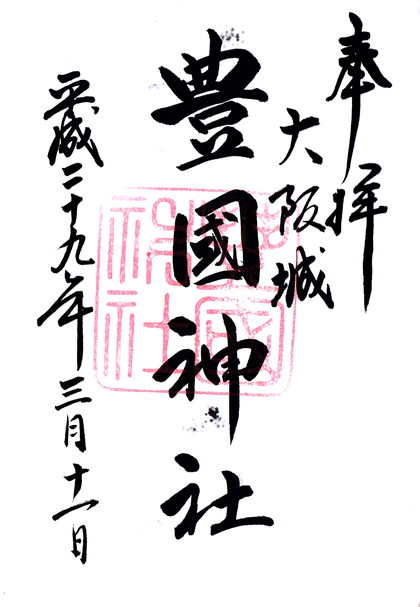 奉拝
大阪城
豊國神社
平成二十九年三月十一日